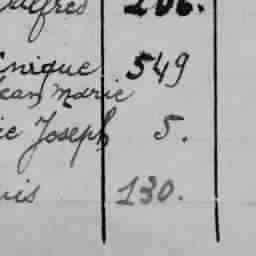 Wilfred 206.
nique 549
Jean Marie
ie Joseph 5.
uis 130.